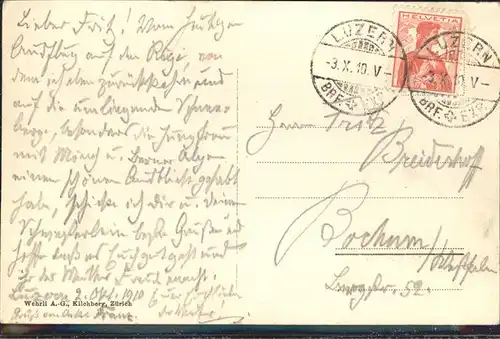 Lieber Fritz! Vom heutigen
Ausflug auf den Rigi, von
dem ich eben zurückkehre und
auf die umliegenden Schnee-
berge, besonders die Jungfrau
mit Mönch u. Berner Alpen
einen schönen Ausblick gehabt
habe, schicke ich dir u. deinen
beste Grüße und
hoffe daß es Euch gut geht und
ihr das Wetter Freude macht.
Luzern 2. Okt. 1910
Gruß von Franz
Wehrli A.-G., Kilchberg, Zürich
HELVETIA
LUZERN
-3.X.10.V-
BRF.
LUZERN
-3.X.10.V-
BRF.
Herrn Fritz
Breiderhoff
Bochum
/Westfalen
52.